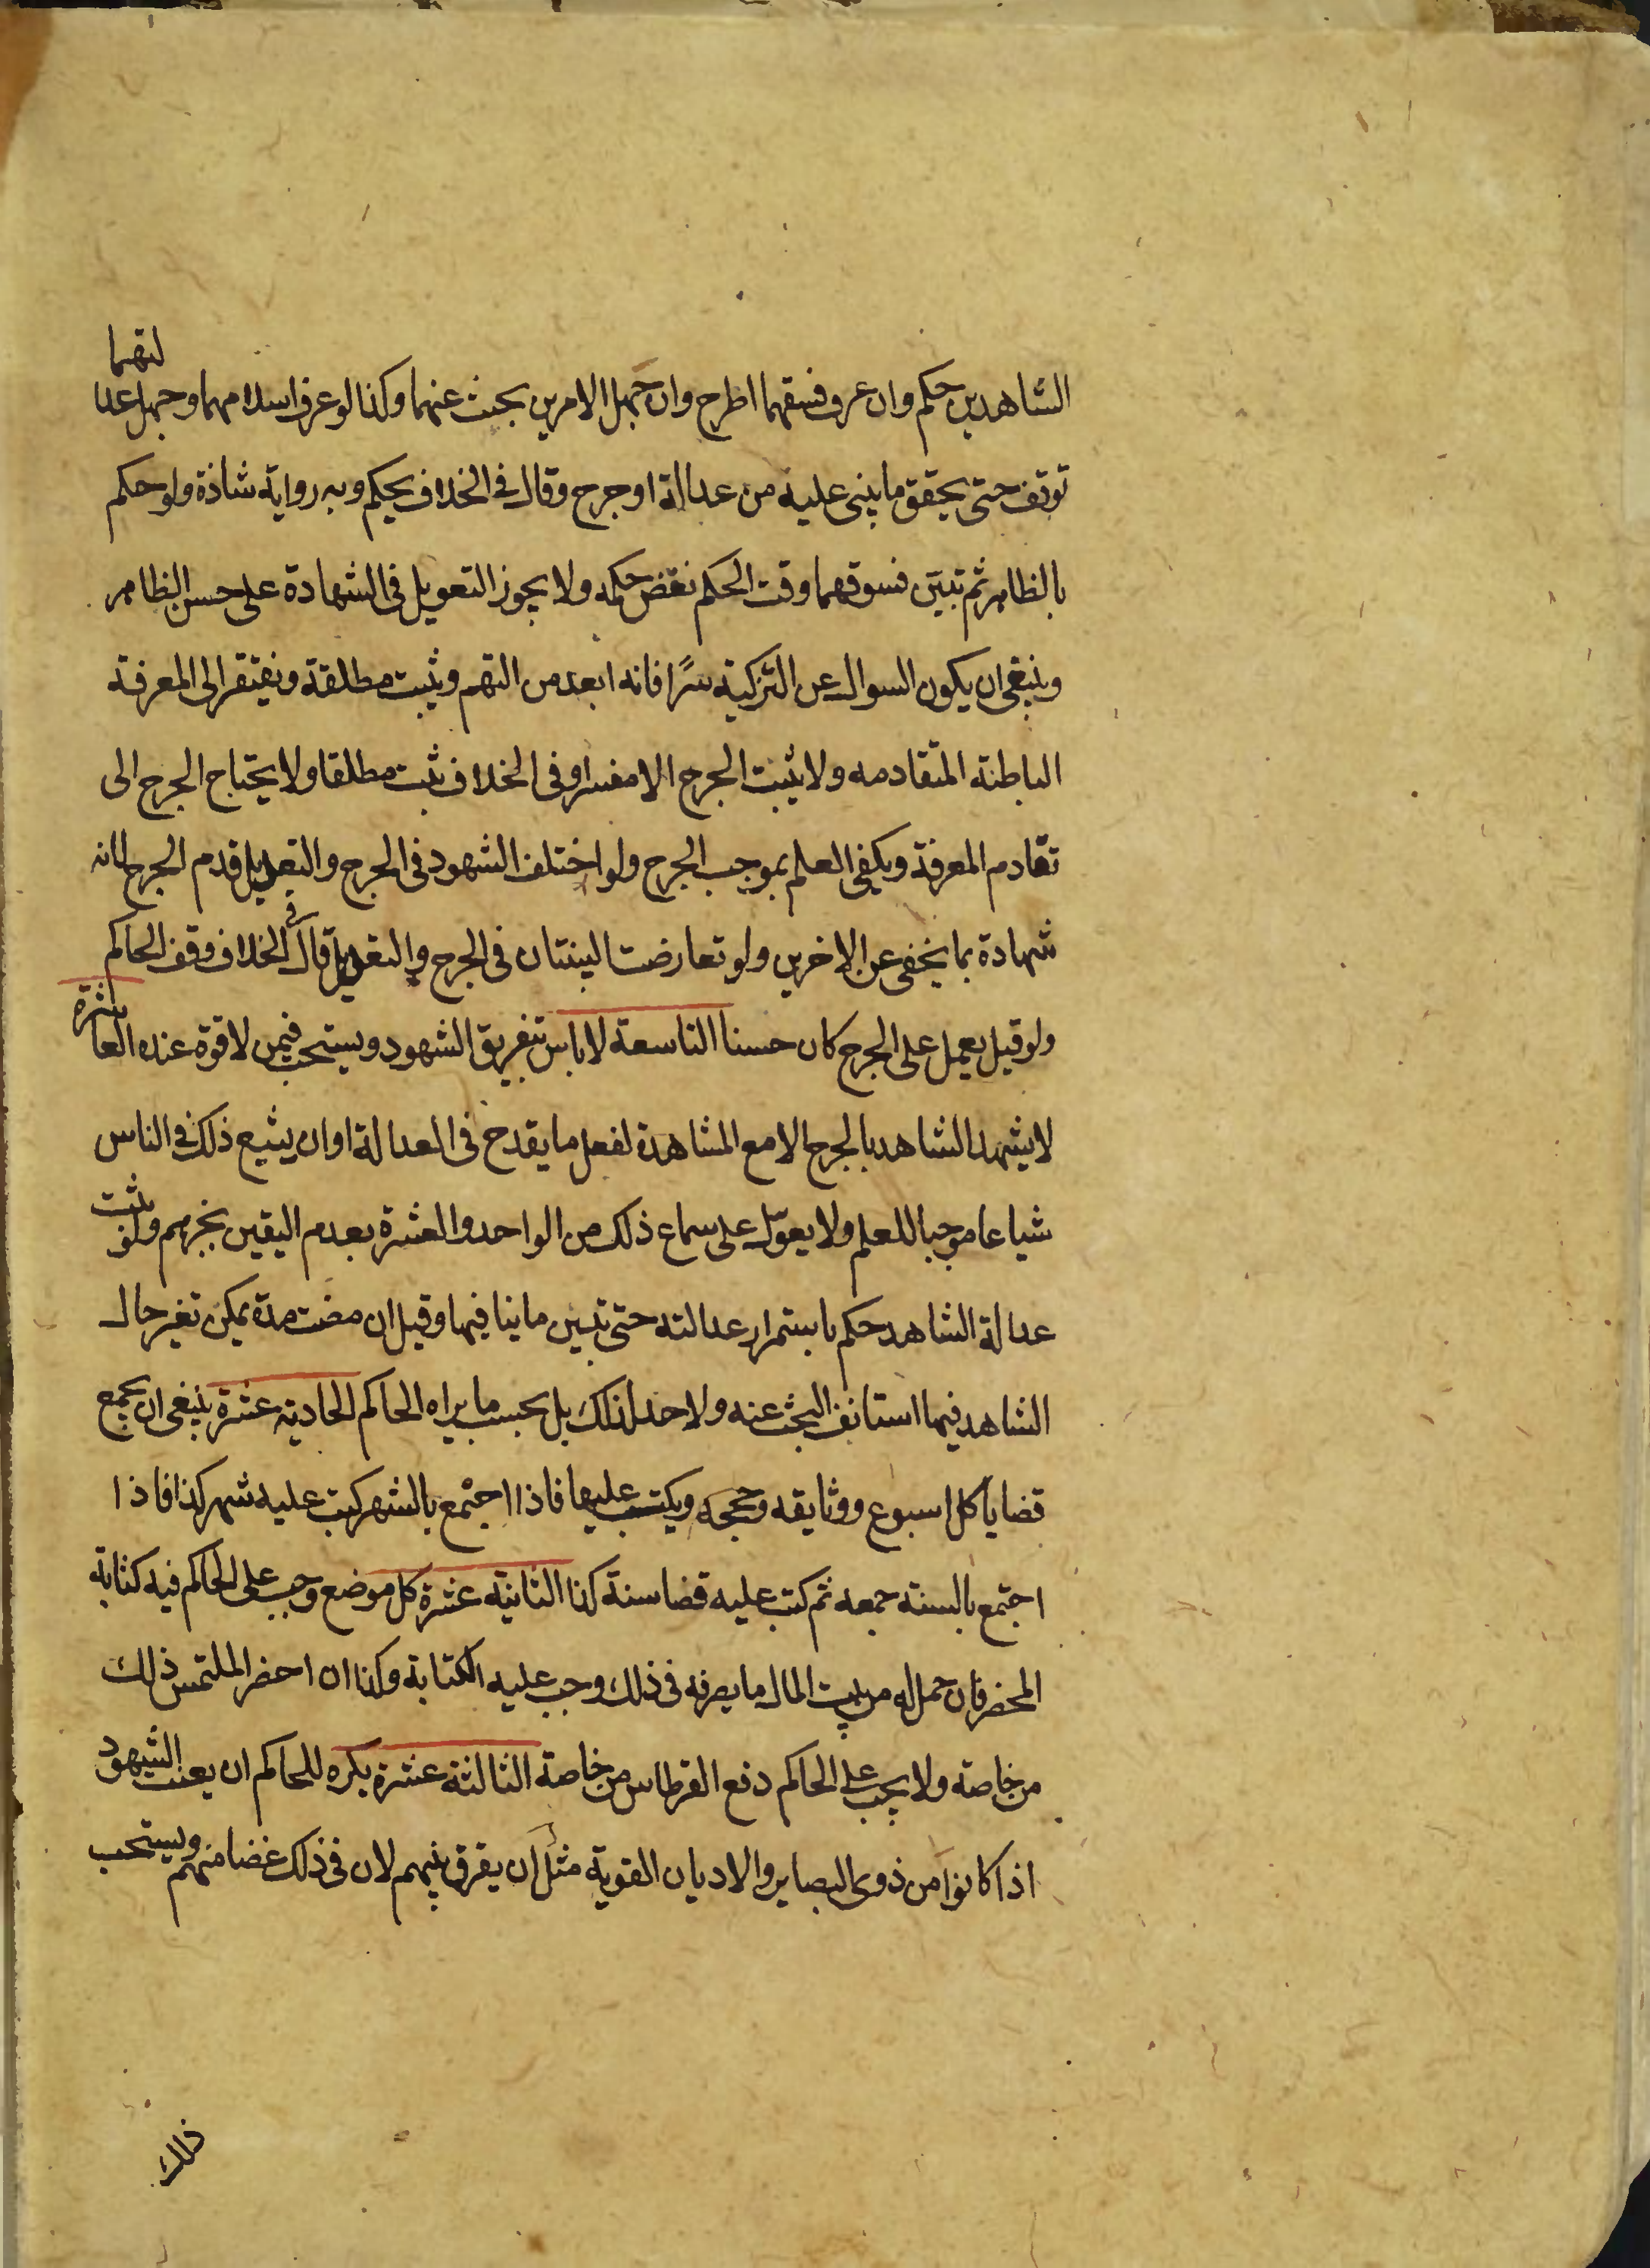 الشاهدين حكم وان عرف فسقهما اطرح وان جهل الامرين بحث عنهما وكذا لو عرف اسلامهما وجهل عدالتهما
توقف حتى يحقق ما يبنى عليه من عدالة او جرح وقال فى الخلاف يحكم وبه رواية شاذة ولو حكم
بالظاهر ثم تبيّن فسوقهما وقت الحكم نقض حكمه ولا يجوز التعويل فى الشهادة على حسن الظاهر
وينبغى ان يكون السوال عن التزكية سرًا فانه ابعد من التهم ويثبت مطلقة ويفتقر الى المعرفة
الباطنة المتقادمه ولا يثبت الجرح الا مفسرا وفى الخلاف يثبت مطلقا ولا يحتاج الجرح الى
تقادم المعرفة ويكفى العلم بموجب الجرح ولو اختلف الشهود فى الجرح والتعديل قدم الجرح لانه
شهادة بما يخفى عن الاخرين ولو تعارضت البينتان فى الجرح والتعديل قال فى الخلاف وقف الحاكم
ولو قيل يعمل على الجرح كان حسنا التاسعة لا باس بتفريق الشهود ويستحب فيمن لا قوة عنده العاشرة
لا يشهد الشاهد بالجرح الا مع المشاهدة لفعل ما يقدح فى العدالة او ان يشيع ذلك فى الناس
شياعا موجبا للعلم ولا يعوّل على سماع ذلك من الواحد والعشرة بعدم اليقين بخبرهم ولو ثبت
عدالة الشاهد حكم باستمرار عدالته حتى تبين ما ينافيها وقيل ان مضت مدة يمكن تغير حال
الشاهد فيها استانف البحث عنه ولا حد لذلك بل بحسب ما يراه الحاكم الحادية عشرة ينبغى ان يجمع
قضايا كل اسبوع ووثايقه وحججه ويكتب عليها فاذا اجتمع بالشهر كتب عليه شهر كذا فاذا
اجتمع بالسنة جمعه ثم كتب عليه قضا سنة كذا الثانية عشرة كل موضع وجب على الحاكم فيه كتابة
المحضر فان حمل له من بيت المال ما يصرفه فى ذلك وجب عليه الكتابة وكذا ان احضر الملتمس ذلك
من خاصته ولا يجب على الحاكم دفع القرطاس من خاصة الثالثة عشرة يكره للحاكم ان يعنت الشهود
اذا كانوا من ذوى البصاير والاديان القوية مثل ان يفرق بينهم لان فى ذلك غضا منهم ويستحب
ذلك